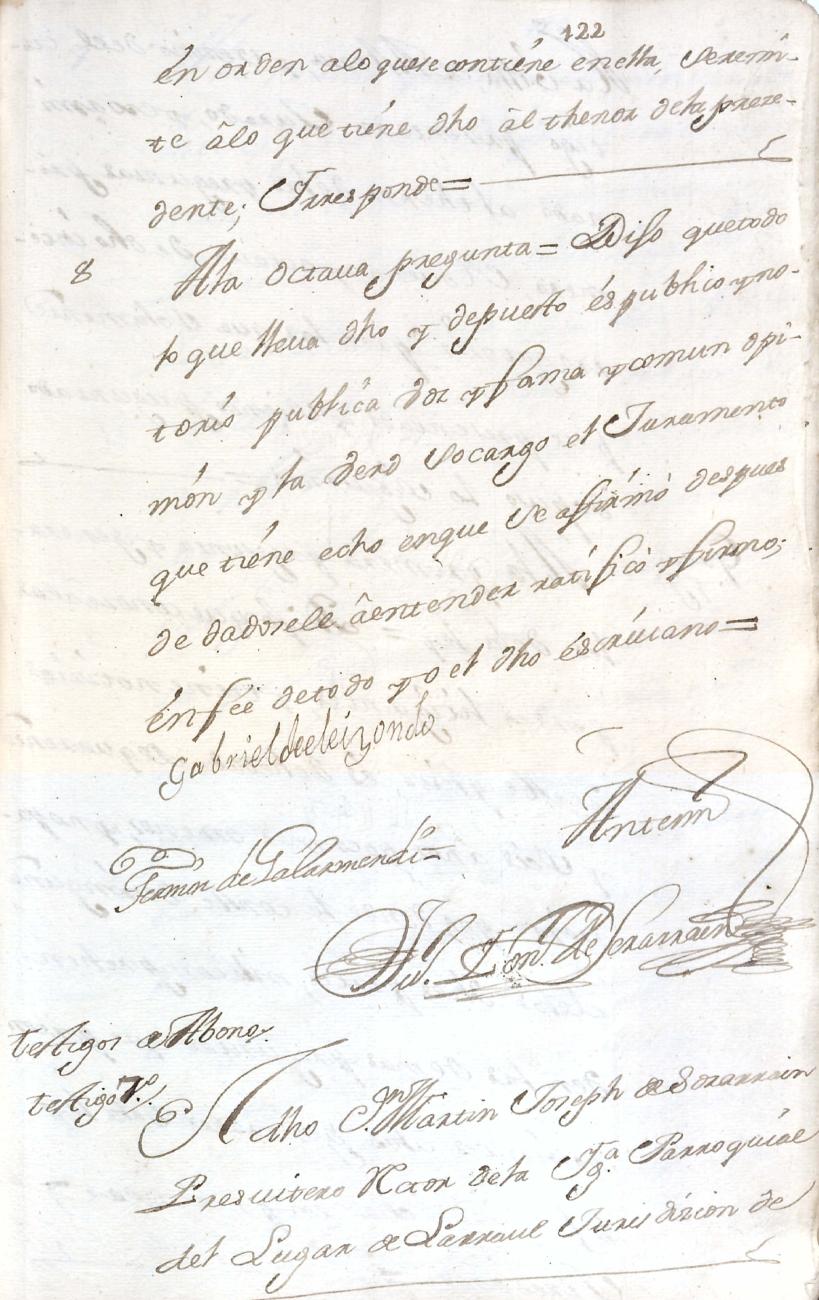 122
en orden alo quese contiene en ella, se remi-
te âlo que tiene dho al thenor dela preze-
dente; Y responde =
8 A la octava pregunta = Dijo que todo
lo que lleva dho y depuesto és publico y no-
torió publica voz y fama y comun opi-
nión y la verd socargo el Juramento
que tiene echo enque se afirmó despues
de dadosele âentender ratificó y firmo;
én feé de todo yo el dho éscriviano =
Gabriel de eleizondo
Fermin de Galarmendi =
Antemi
de Sorarrain
testigos de Abono
testigo 7.º El dho Dn Martin Joseph de Sorarrain
Presvitero Rector de la Iga Parroquial
del Lugar de Larraul Jurisdizion de